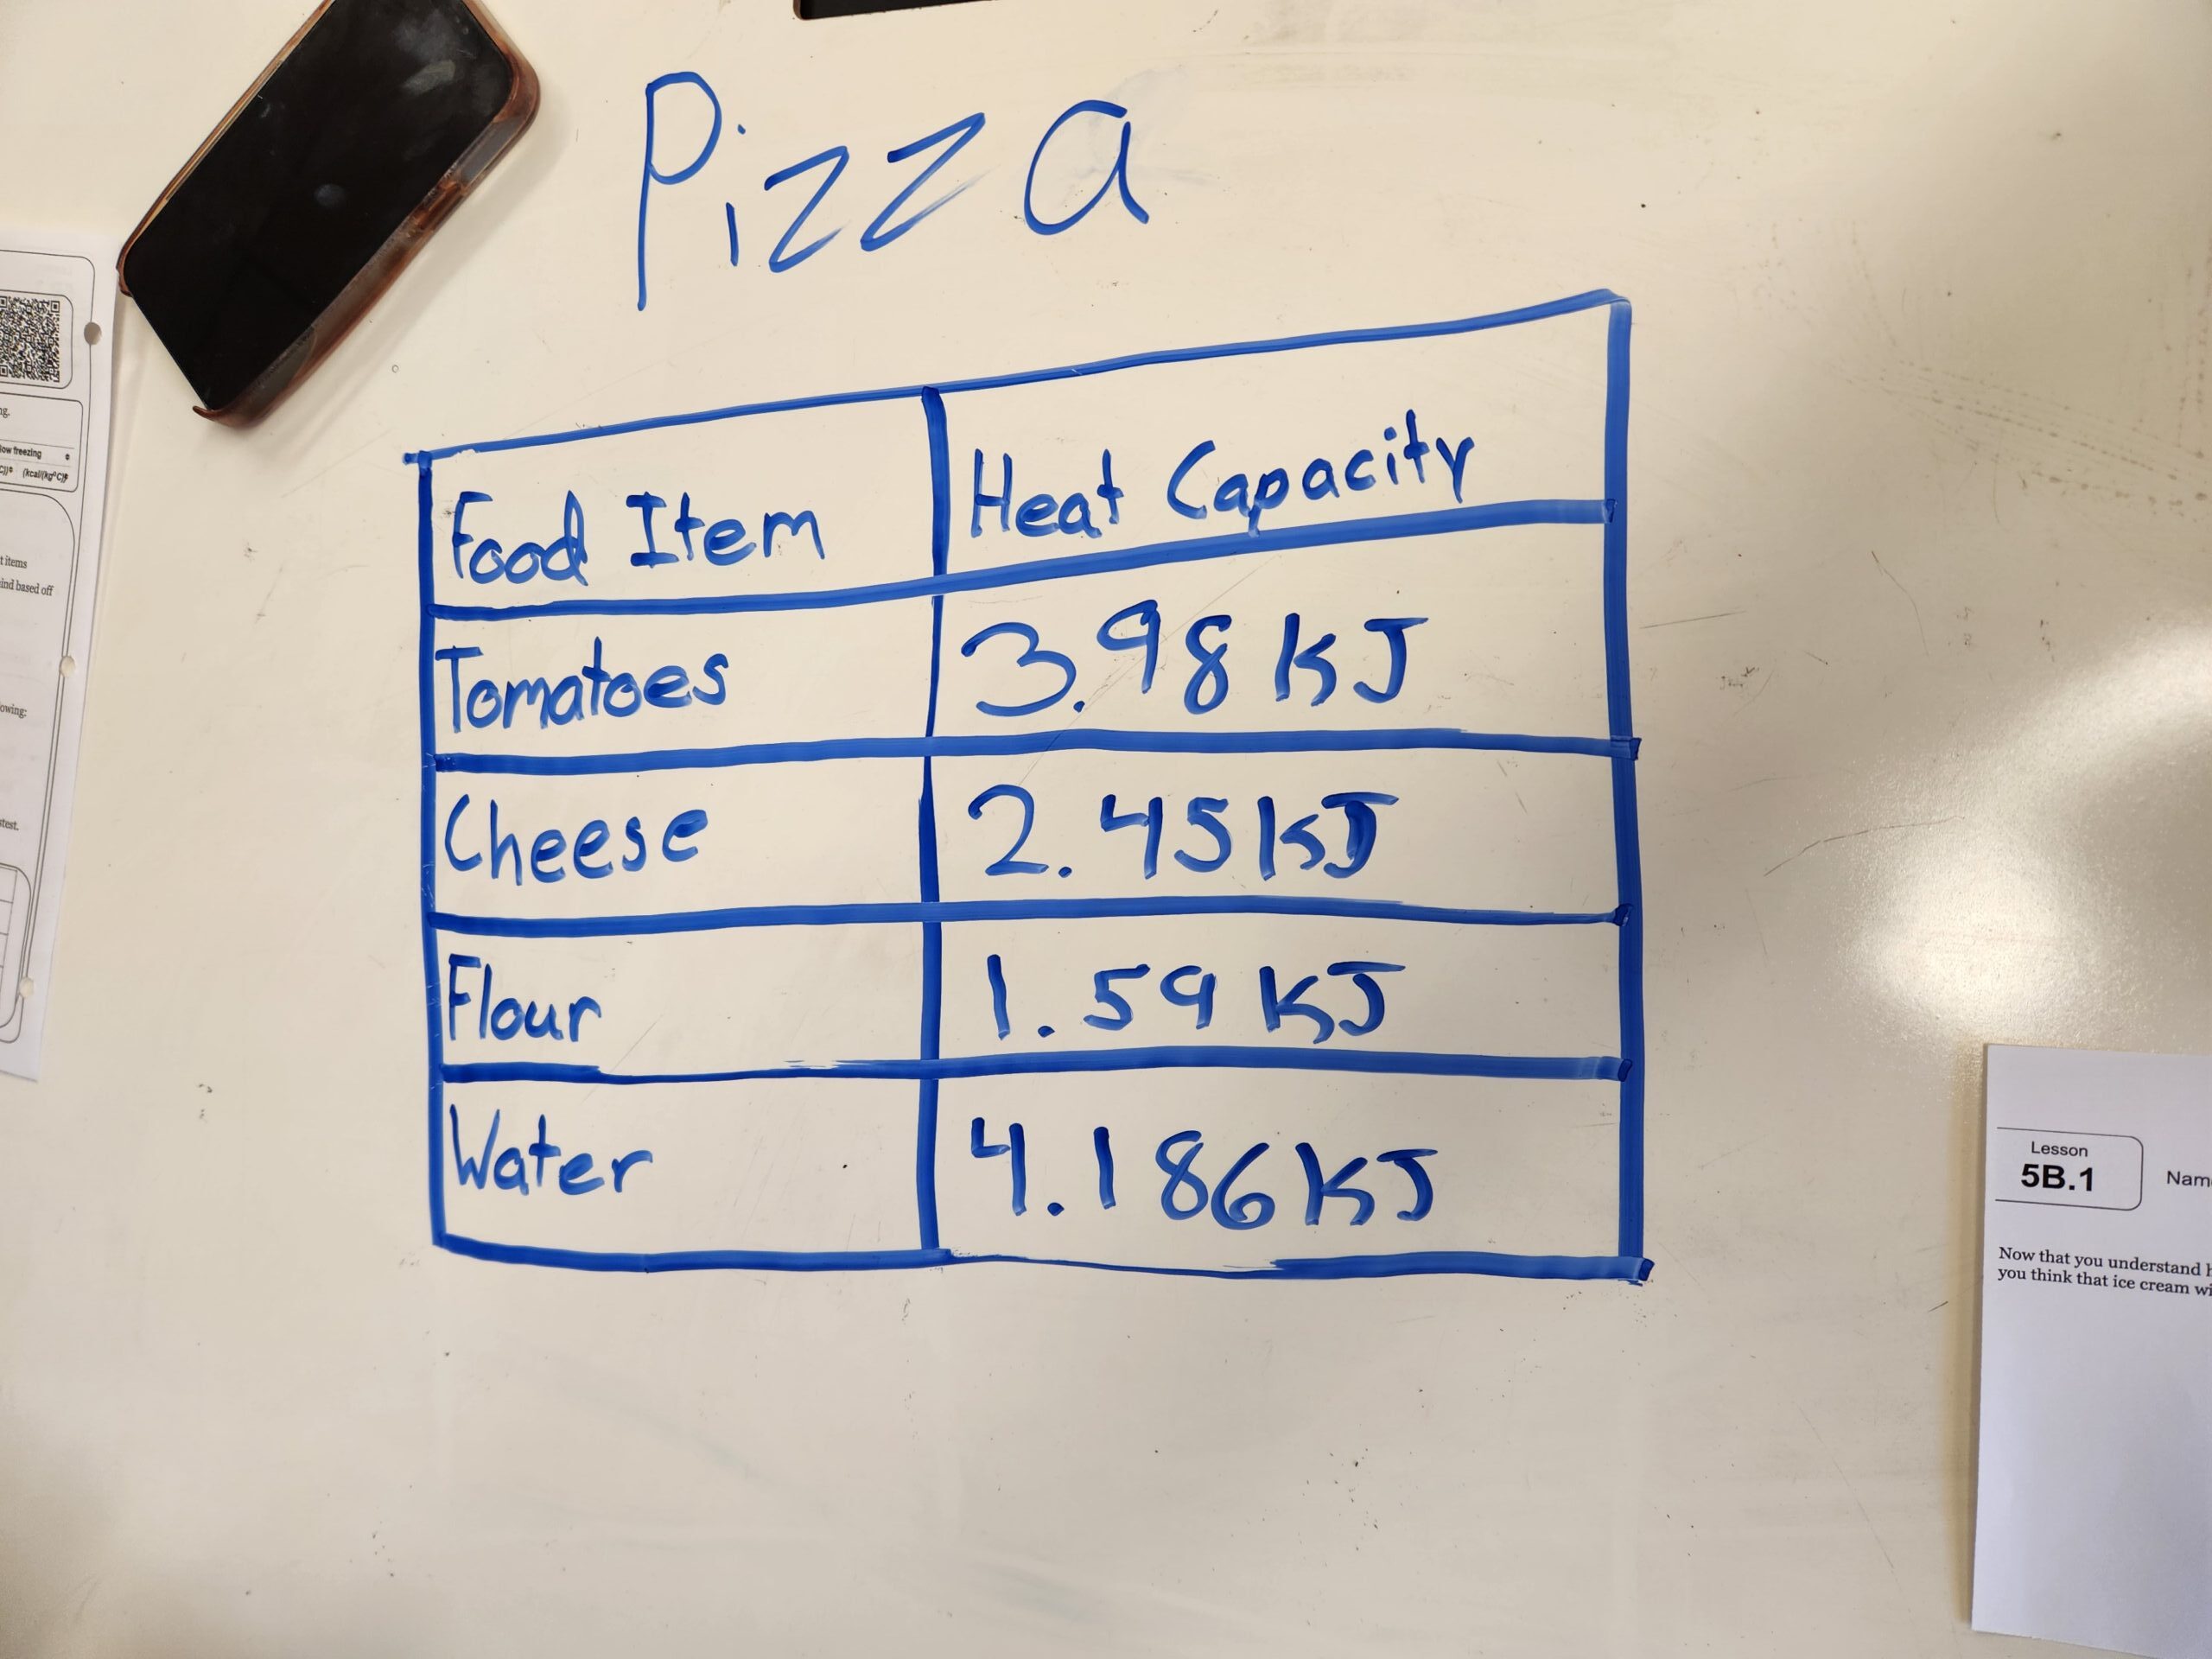 Pizza
Food Item Heat Capacity
Tomatoes 3.98 KJ
Cheese 2.45 KJ
Flour 1.59 KJ
Water 4.186 KJ
ng.
low freezing
(kcal/(kg°C))
t items
ind based off
owing:
test.
Lesson
5B.1
Now that you understand
you think that ice cream